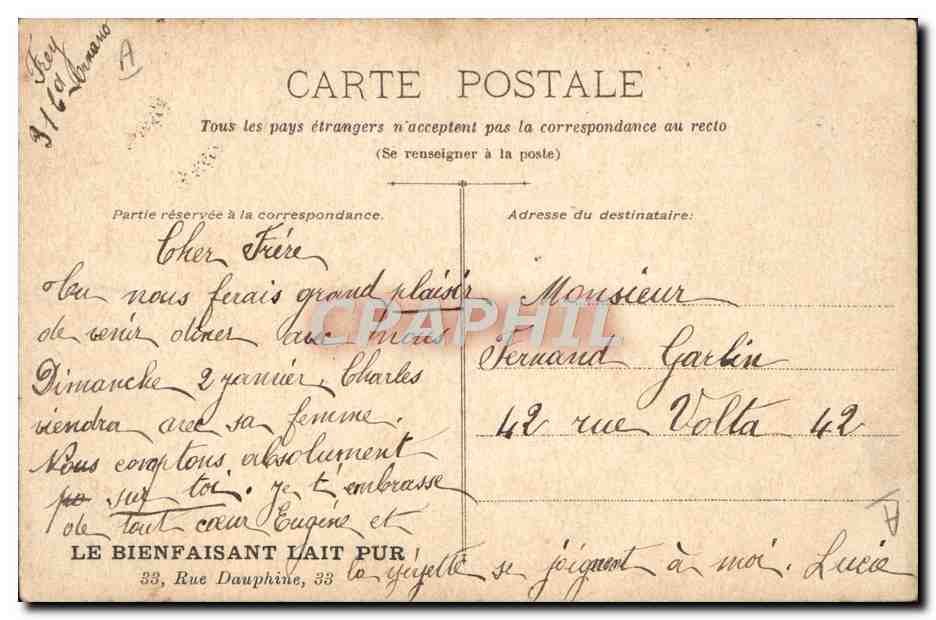 Frey
316 Ornano
A
CARTE POSTALE
Tous les pays étrangers n'acceptent pas la correspondance au recto
(Se renseigner à la poste)
Partie réservée à la correspondance.
Cher Frère
tu nous ferais grand plaisir
de venir diner avec nous
Dimanche 2 janvier, Charles
viendra avec sa femme.
Nous comptons absolument
sur toi. je t'embrasse
de tout cœur Eugène et
la gigette se joignent à moi. Lucie
LE BIENFAISANT LAIT PUR
33, Rue Dauphine, 33
Adresse du destinataire:
Monsieur
Fernand Garlin
42 rue Volta 42
A
CPAPHIL